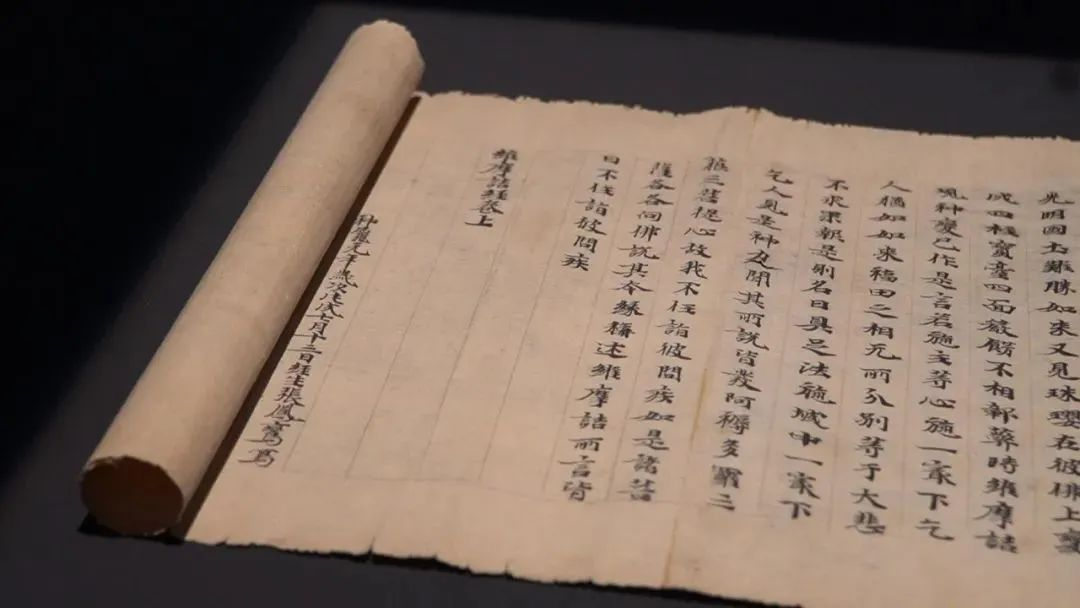 光明國土難勝如來又見珠瓔在彼佛上變
成四柱寶臺四面嚴飾不相鄣蔽時維摩詰
現神變已作是言若施主等心施一冣下乞
人猶如如來福田之相无所分別等于大悲
不求果報是則名曰具足法施城中一冣下
乞人見是神力聞其所說皆發阿耨多羅三
藐三菩提心故我不任詣彼問疾如是諸菩
薩各各向佛說其本緣稱述維摩詰所言皆
曰不任詣彼問疾
維摩詰經卷上
神龜元年歲次戊戌七月十三日經生張鳳鸞寫